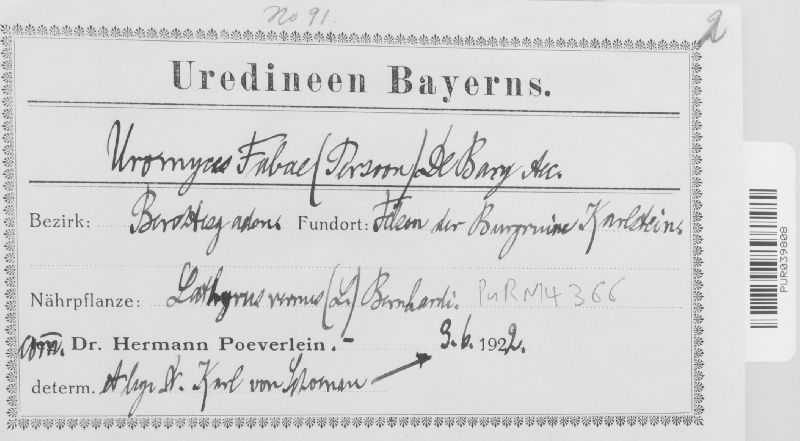 No 91.
2
Uredineen Bayerns.
Uromyces Fabae (Persoon) De Bary
Bezirk: Berchtesgaden. Fundort: Felsen der Burgruine Karlstein.
Nährpflanze: Lathyrus vernus (L.) Bernhardi. PuRM4366
com. Dr. Hermann Poeverlein. - 3.6.1922.
determ. Dr. Karl von
PUR039808